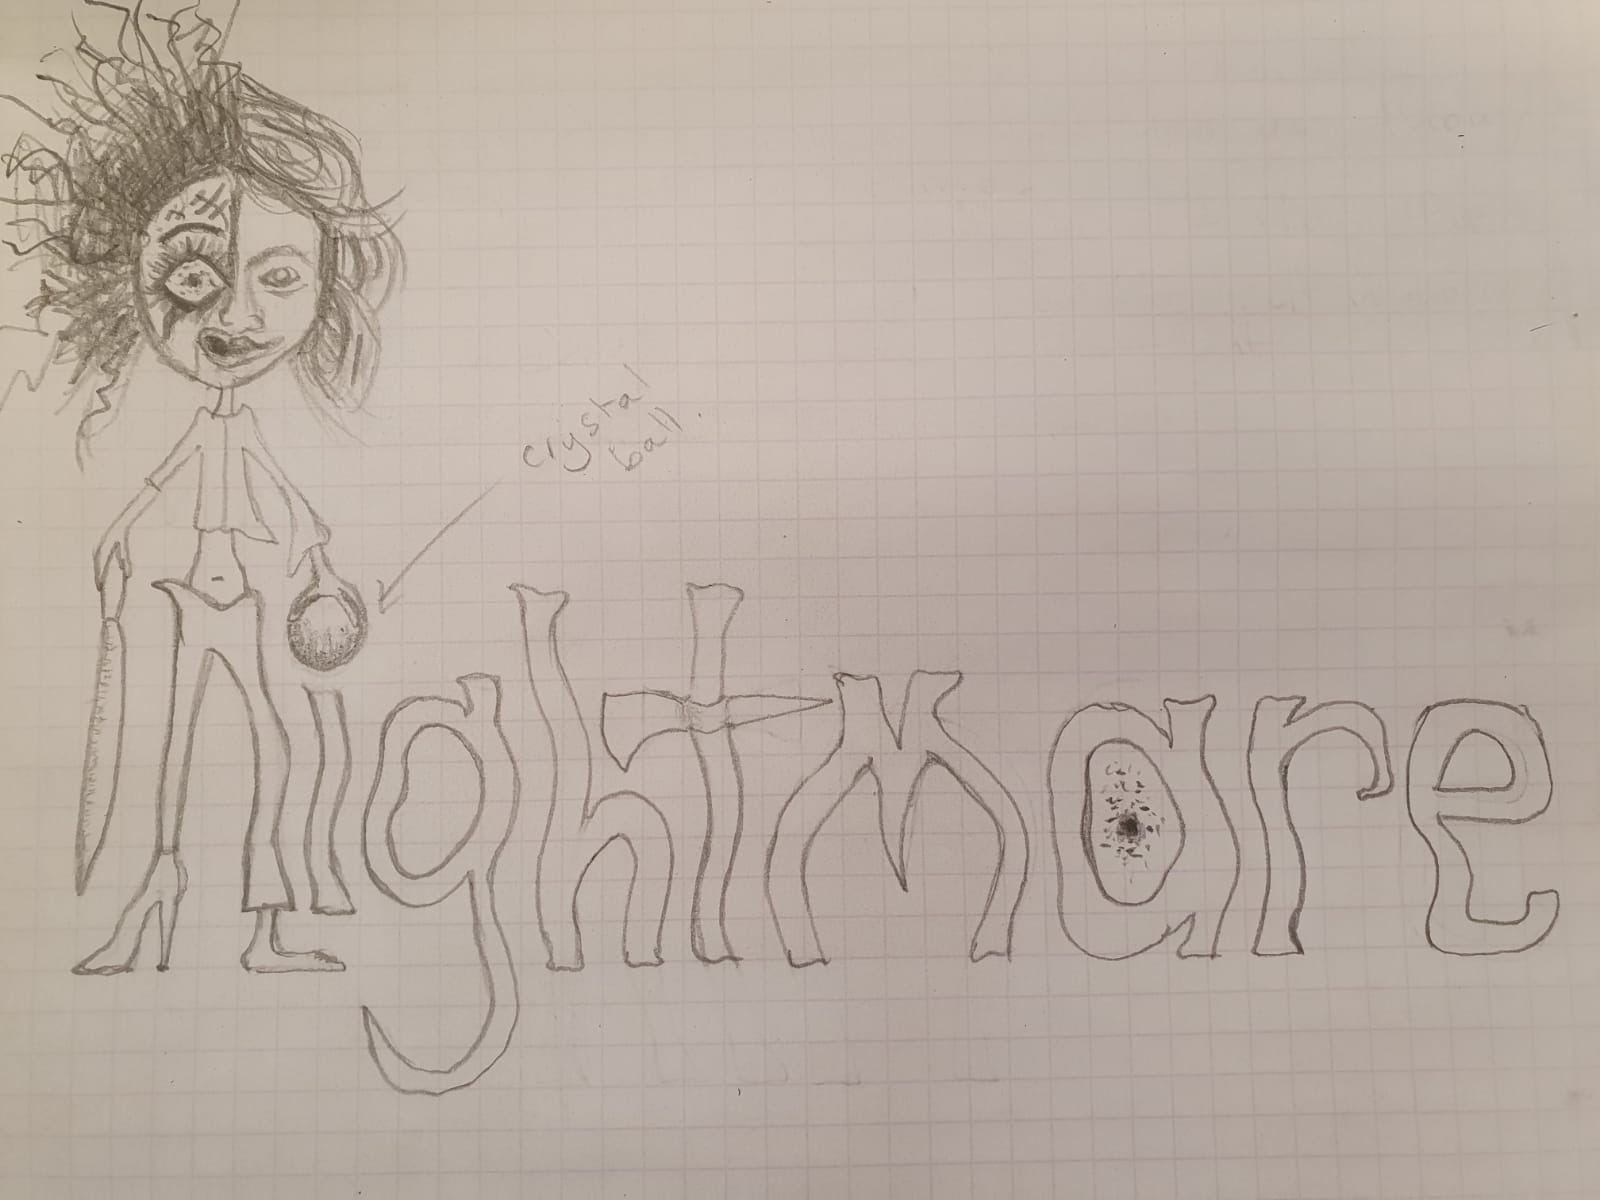 crystal
ball.
nightmare